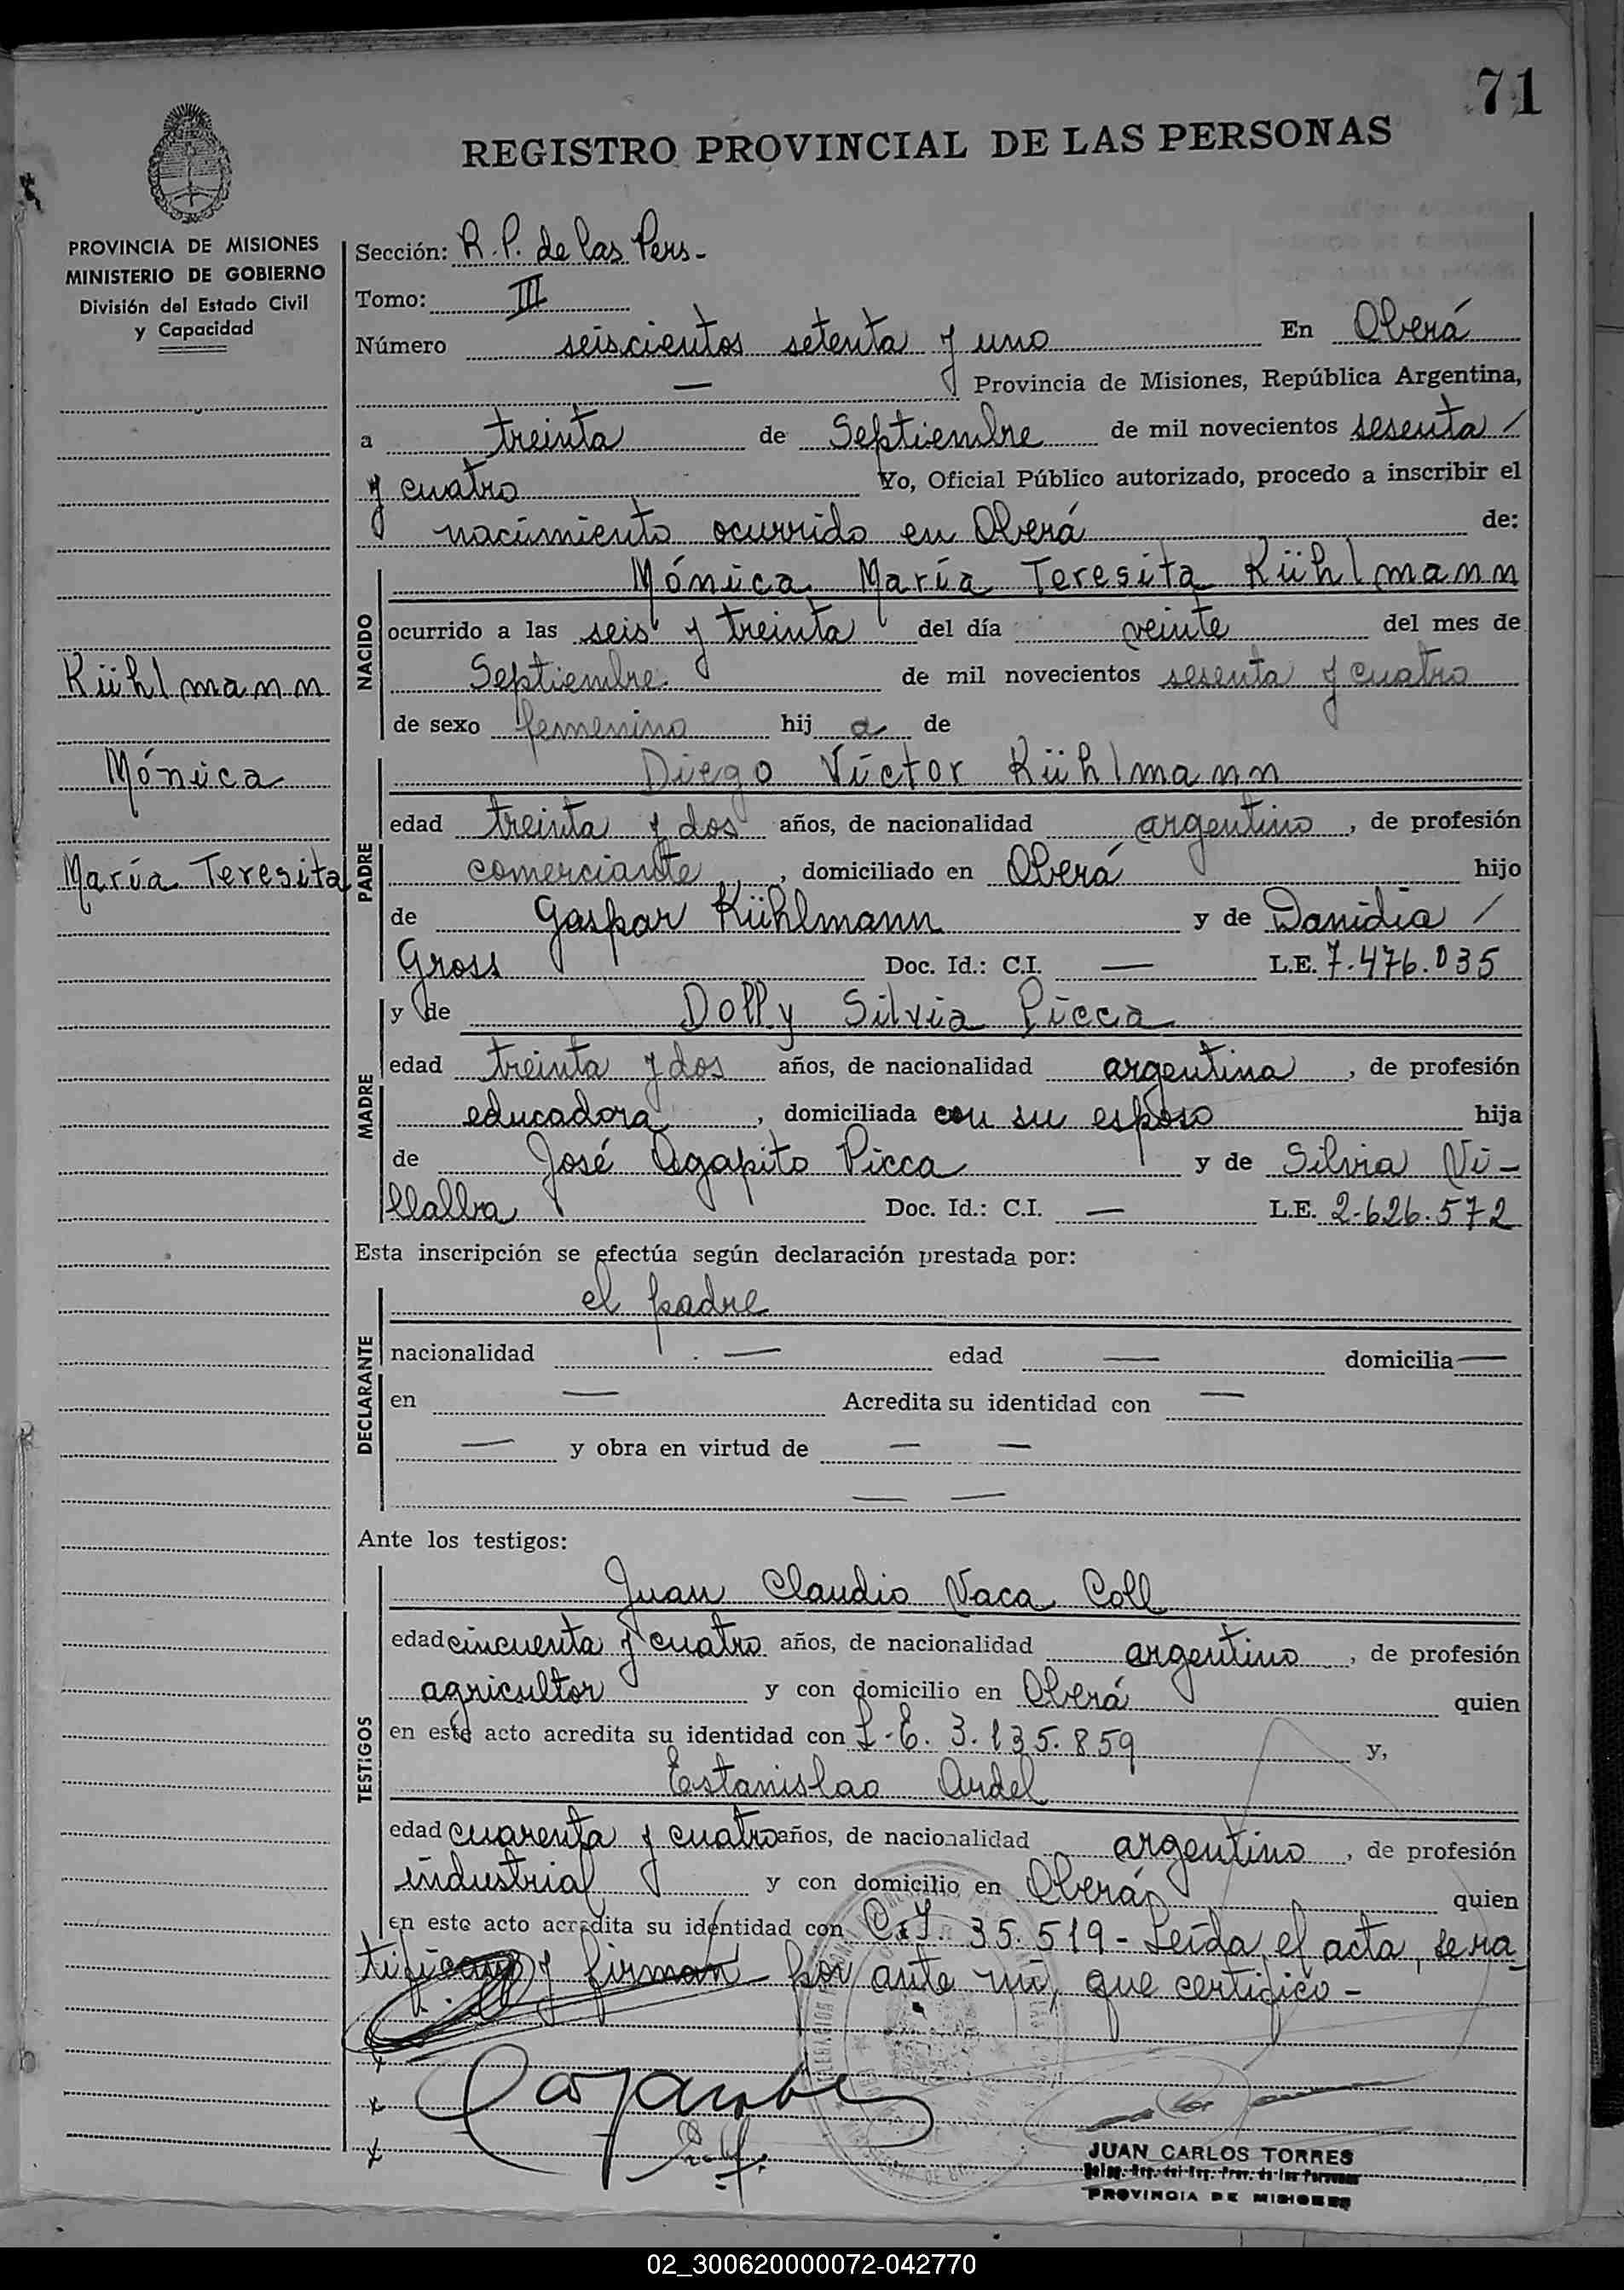 71
REGISTRO PROVINCIAL DE LAS PERSONAS
PROVINCIA DE MISIONES
MINISTERIO DE GOBIERNO
División del Estado Civil
y Capacidad
Kühlmann
Mónica
María Teresita
Sección: R.P. de las Pers-
Tomo: III
Número seiscientos setenta y uno En Oberá
— Provincia de Misiones, República Argentina,
a treinta de Septiembre de mil novecientos sesenta /
y cuatro Yo, Oficial Público autorizado, procedo a inscribir el
nacimiento ocurrido en Oberá de:
NACIDO
Mónica María Teresita Kühlmann
ocurrido a las seis y treinta del día veinte del mes de
Septiembre de mil novecientos sesenta y cuatro
de sexo femenino hij a de
PADRE
Diego Víctor Kühlmann
edad treinta y dos años, de nacionalidad argentino, de profesión
comerciante, domiciliado en Oberá hijo
de Gaspar Kühlmann y de Danidia /
Gross Doc. Id.: C.I. — L.E. 7.476.035
MADRE
y de Dolly Silvia Picca
edad treinta y dos años, de nacionalidad argentina, de profesión
educadora, domiciliada con su esposo hija
de José Agapito Picca y de Silvia Vi-
llalba Doc. Id.: C.I. — L.E. 2.626.572
Esta inscripción se efectúa según declaración prestada por:
DECLARANTE
el padre
nacionalidad — edad — domicilia —
en — Acredita su identidad con —
— y obra en virtud de — —
— —
Ante los testigos:
TESTIGOS
Juan Claudio Vaca Coll
edad cincuenta y cuatro años, de nacionalidad argentino, de profesión
agricultor y con domicilio en Oberá quien
en este acto acredita su identidad con L.E. 3.135.859 y,
Estanislao Ardel
edad cuarenta y cuatro años, de nacionalidad argentino, de profesión
industrial y con domicilio en Oberá quien
en este acto acredita su identidad con C.I. 35.519- Leída el acta, se ra
tifican y firman por ante mí, que certifico-
x
x
x
JUAN CARLOS TORRES
PROVINCIA DE MISIONES
02_300620000072-042770